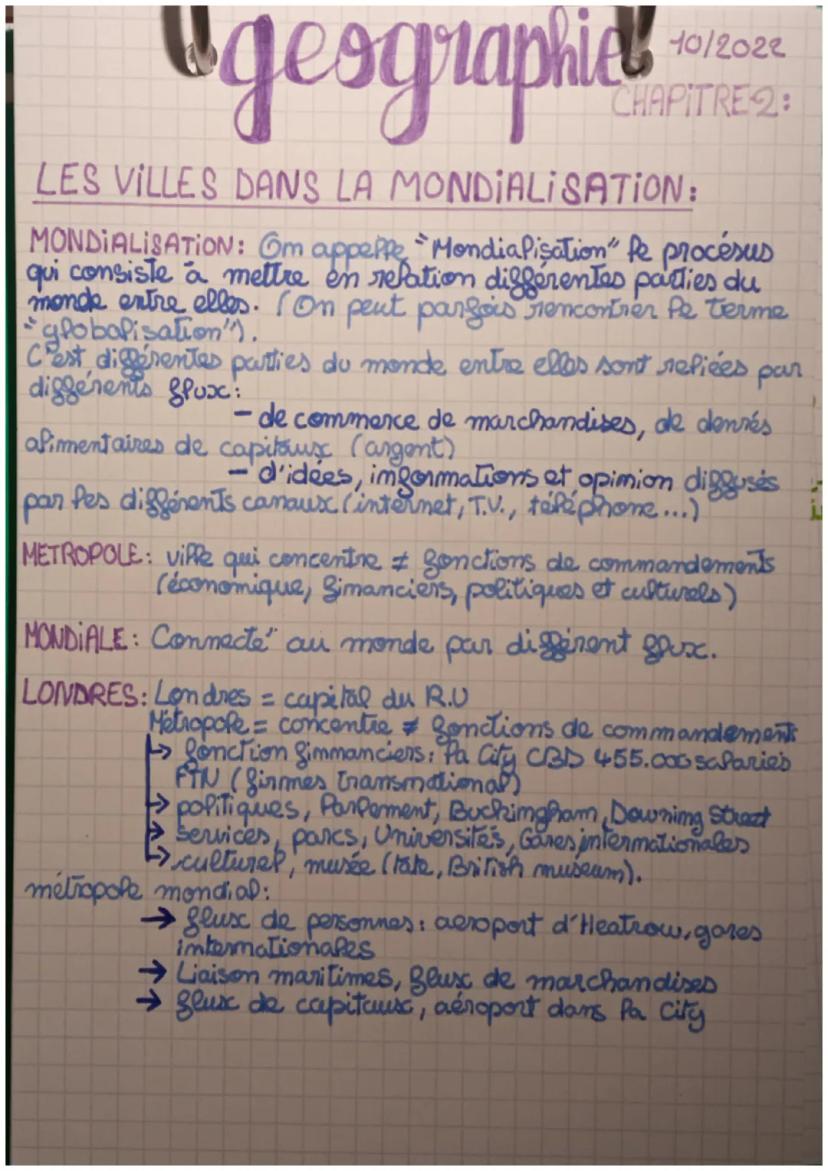 geographie
10/2022
CHAPITRE 2:
LES VILLES DANS LA MONDIALISATION:
MONDIALISATION: On appelle "Mondialisation" le procésus
qui consiste à mettre en relation différentes parties du
monde entre elles. (On peut parfois rencontrer le terme
"globalisation").
C'est différentes parties du monde entre elles sont reliées par
différents flux:
- de commerce de marchandises, de denrés
alimentaires de capitaux (argent)
- d'idées, informations et opinion diffusés
par les différents canaux (internet, T.V., téléphone...)
METROPOLE: ville qui concentre ≠ fonctions de commandements
(économique, financiers, politiques et culturels)
MONDIALE: Connecté au monde par différent flux.
LONDRES: Londres = capital du R.U
Métropole = concentre ≠ fonctions de commandement
↳ fonction finmanciers: la City CBD 455.000 salariés
FTN (firmes transnational)
→ politiques, Parlement, Buckingham, Downing Street
→ Services, parcs, Universités, Gares internationales
↳ culturel, musée (tate, British museum).
métropole mondial:
→ flux de personnes: aeroport d'Heatrow, gares
internationales
→ Liaison maritimes, flux de marchandises
→ flux de capitaux, aéroport dans la City